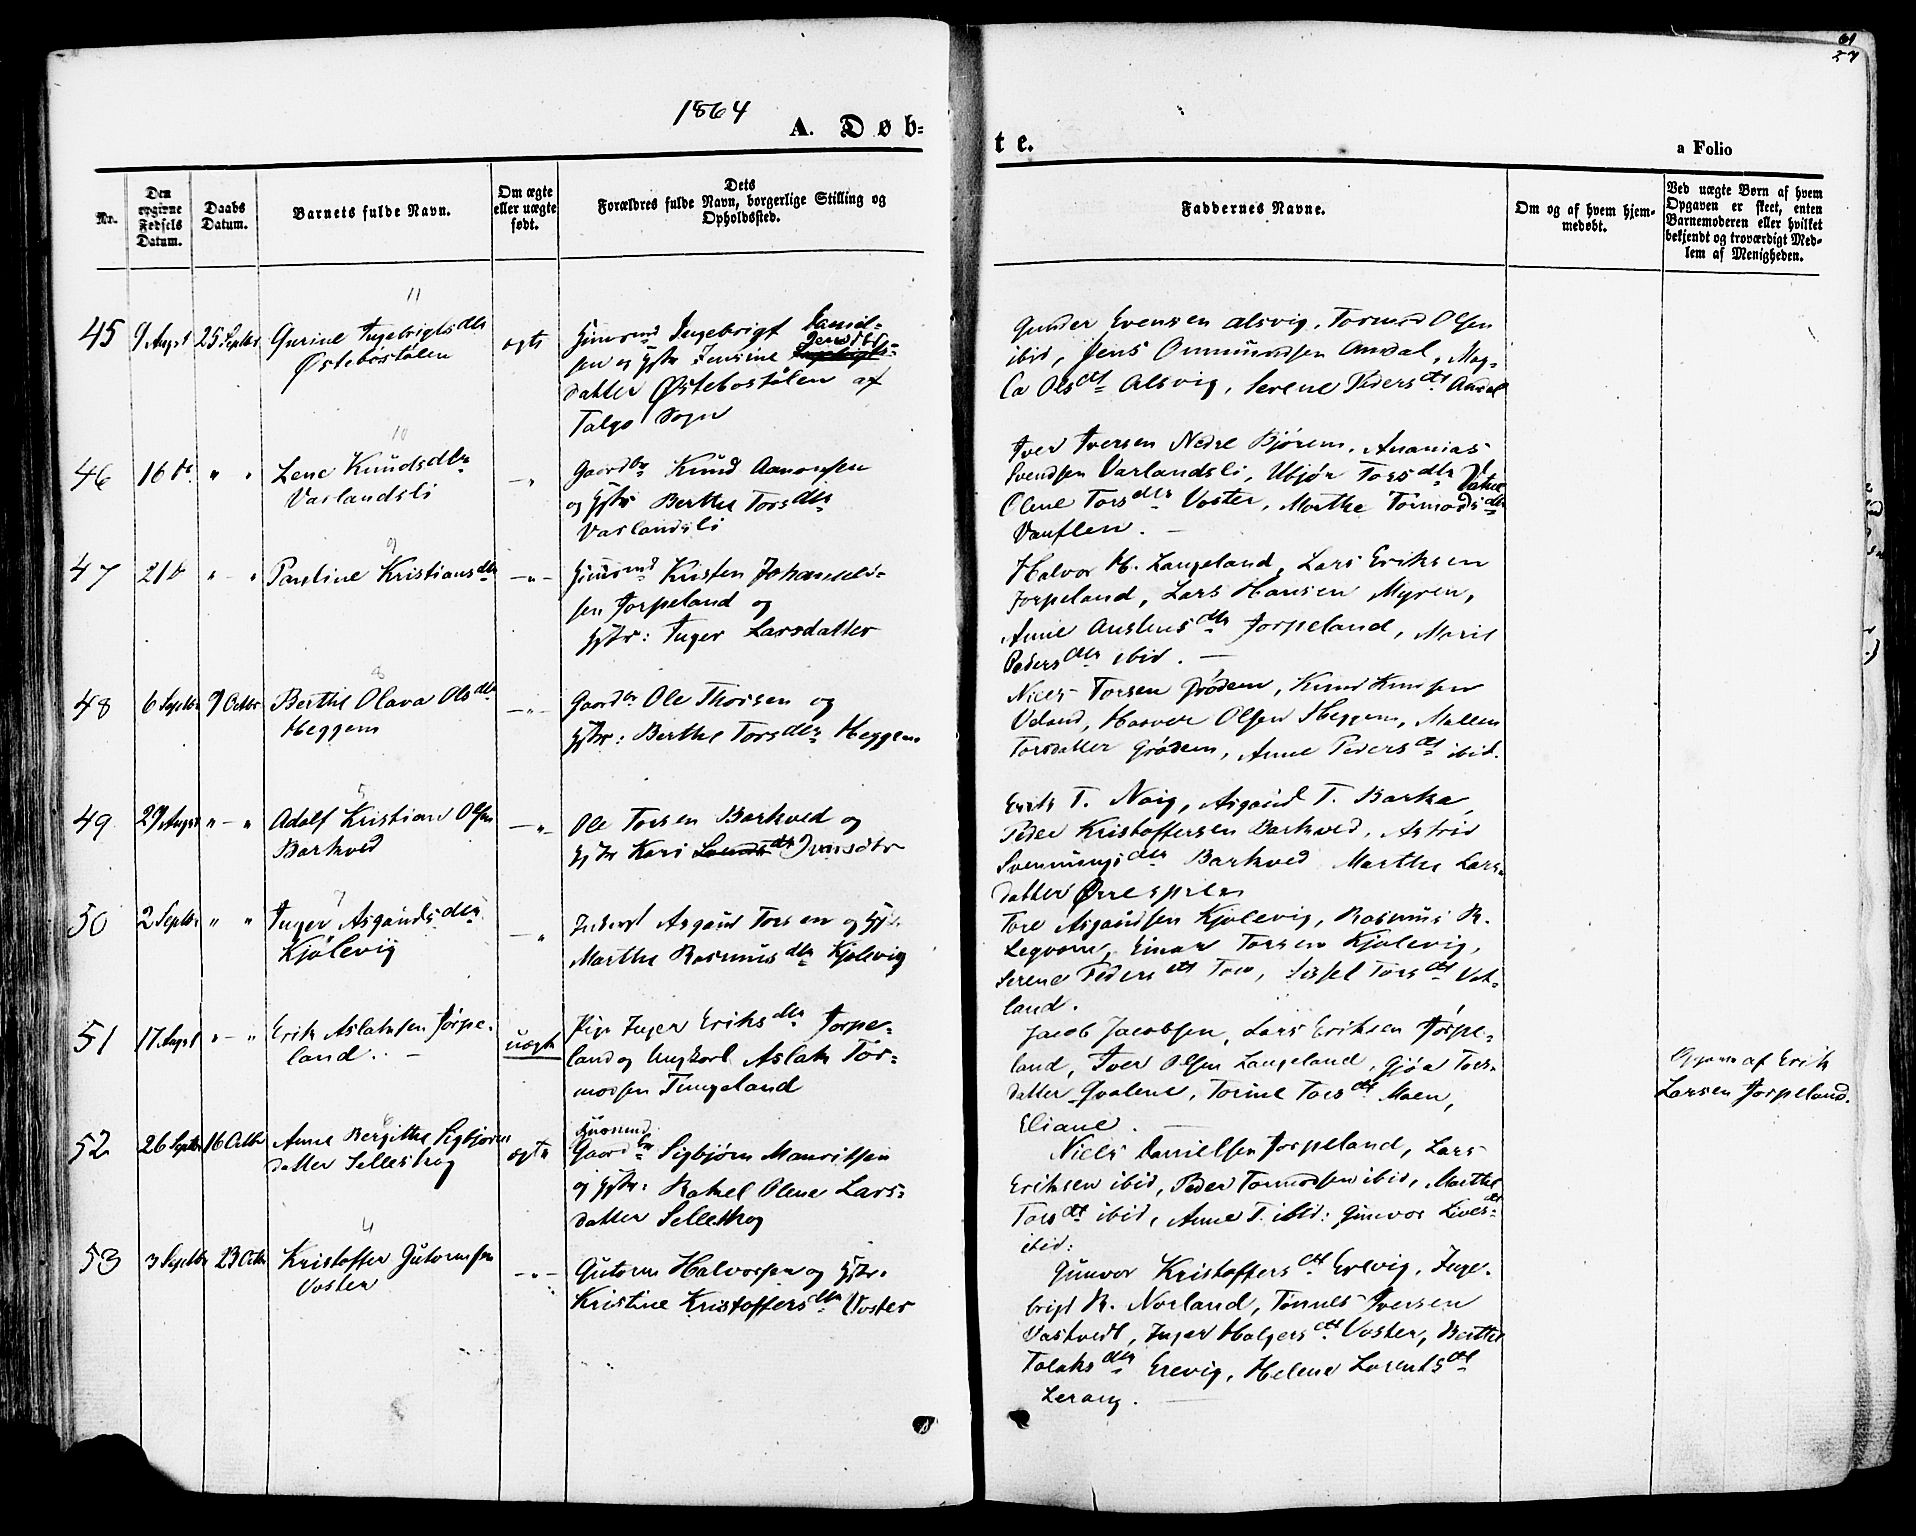 61
57
1864
A. Døb-
te.
a Folio
Nr.
Den
opgivne
Fødsels
Datum.
Daabs
Datum.
Barnets fulde Navn.
Om ægte
eller uægte
født.
Dets
Forældres fulde Navn, borgerlige Stilling og
Opholdssted.
Faddernes Navne.
Om og af hvem hjem-
medøbt.
Ved uægte Børn af hvem
Opgaven er skeet, enten
Barnemoderen eller hvilket
bekjendt og troværdigt Med-
lem af Menigheden.
11
45 9 Augst 25 Septbr Gurine Ingebrigtsdtr
Østebøstølen
ægte
Huusmd Ingebrigt Daniel-
sen og Hstr Jensine
datter Østebøstølen af
Talgø Sogn
Gunder Evensen Alsvig, Tormod Olsen
ibid, Jens Ommundsen Amdal, Mag-
Ca Olsdtr Alsvig, Serene Pedersdtr Amdal
10
46 16 d " " Lene Knudsdtr
Varlandsli
-"-
Gaardbr Knud Aanonsen
og Hstr Berthe Torsdtr
Varlandsli
Iver Iversen Nedre Bjørem, Ananias
Svendsen Varlandsli, Ubjør Torsdtr Vatne
Olene Torsdtr Voster, Marthe Tormodsdtr
9
47 21 d " - " Pauline Kristiansdtr -"-
Huusmd Kristen Johannes-
sen Jørpeland og
Hstr: Inger Larsdatter
Halvor H. Langeland, Lars Eriksen
Jørpeland, Lars Hansen Myren,
Anne Austensdtr Jørpeland, Marie
Pedersdtr ibid. —
8
48 6 Septbr 9 Octbr Berthe Olava Olsdtr
Heggem
-"-
Gaardbr Ole Thorsen og
Hstr: Berthe Torsdtr Heggem
Niels Torsen Grødem, Knud Knudsen
Veland, Haaver Olsen Heggem, Mallene
Torsdatter Grødem, Anne Pedersdtr ibid.
5
49 29 Augst " - " Adolf Kristian Olsen
Barkved
-"-
Ole Torsen Barkved og
Hstr Kari Svendsdtr Iversdtr
Erik T. Nag, Asgaut T. Barka,
Peder Kristoffersen Barkved, Astrid
Svenningsdtr Barkved Marthe Lars-
datter
7
50 2 Septbr " " Inger Asgautsdtr
Kjølevig
-"
Inderst Asgaut Torsen og Hstr
Marthe Rasmusdtr Kjølevig
Tore Asgautsen Kjølevig, Rasmus R.
Legvøre, Einar Torsen Kjølevig,
Serene Pedersdtr Tow, Sissel Torsdtr Vat-
land.
51 17 Augst " - " Erik Aslaksen Jørpe-
land. —
uægte
Pige Inger Eriksdtr Jørpe-
land og Ungkarl Aslak Tor-
mosen Tungeland
Jacob Jacobsen, Lars Eriksen Jørpe-
land, Iver Olsen Langeland, Gjøa Tors-
datter Qvalene, Torine Torsdtr Moen,
Eliane. —
Opgaven af Erik
Larsen Jørpeland.
6
52 26 Septbr 16 Octbr Anne Bergithe Sigbjørns
datter Sellestrog
ægte
Huusmd
Gaardbr Sigbjørn Mauritsen
og Hstr: Rakel Olene Lars-
datter Sellestrog
Niels Danielsen Jørpeland, Lars
Eriksen ibid, Peder Tormodsen ibid, Marthe
Torsdtr ibid, Anne T. ibid: Gunvor Liversdtr
ibid:
4
53 3 Septbr 23 Octbr Kristoffer Gutormsen
Voster
-"-
Gutorm Halvorsen og Hstr.
Kristine Kristoffersdtr Voster
Gunvor Kristoffersdtr Erevig, Inge-
brigt R. Norland, Tønnes Iversen
Vastvedt, Inger Holgersdtr Voster, Berthe
Tolaksdtr Erevig, Helene Lorentsdtr
Lerang. —